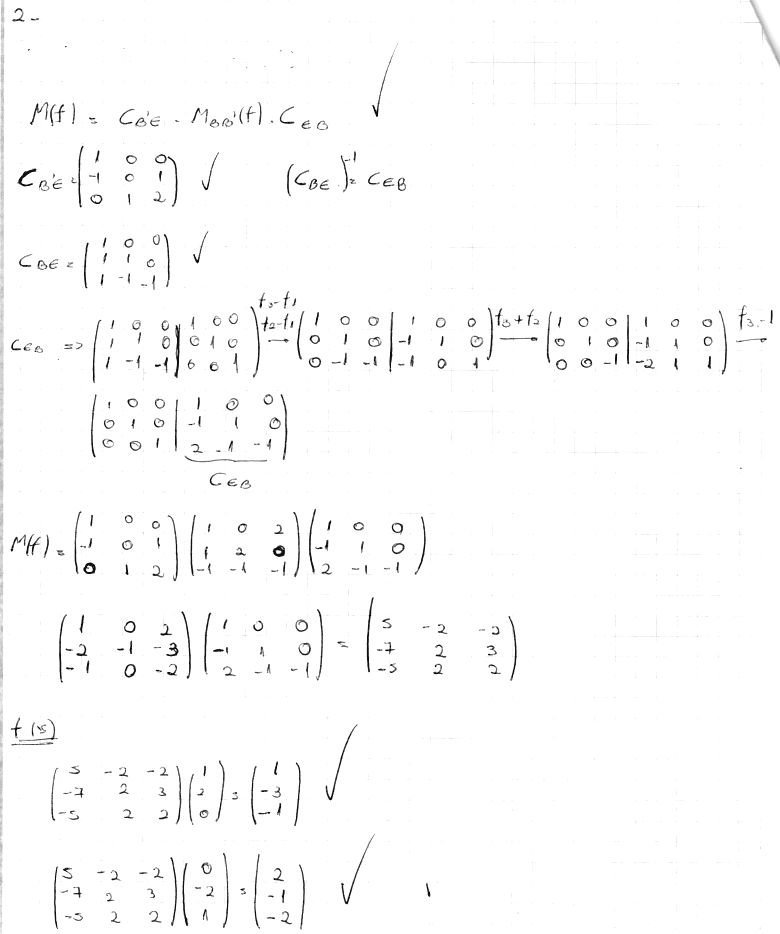 2-
M(f) = C_{B'E} · M_{BB'}(f) · C_{EB} ✓
C_{B'E} = \begin{pmatrix} 1 & 0 & 0 \\ -1 & 0 & 1 \\ 0 & 1 & 2 \end{pmatrix} ✓ (C_{BE})^{-1} = C_{EB}
C_{BE} = \begin{pmatrix} 1 & 0 & 0 \\ 1 & 1 & 0 \\ 1 & -1 & -1 \end{pmatrix} ✓
C_{EB} => \left(\begin{array}{ccc|ccc} 1 & 0 & 0 & 1 & 0 & 0 \\ 1 & 1 & 0 & 0 & 1 & 0 \\ 1 & -1 & -1 & 0 & 0 & 1 \end{array}\right) \xrightarrow[f_2-f_1]{f_3-f_1} \left(\begin{array}{ccc|ccc} 1 & 0 & 0 & 1 & 0 & 0 \\ 0 & 1 & 0 & -1 & 1 & 0 \\ 0 & -1 & -1 & -1 & 0 & 1 \end{array}\right) \xrightarrow{f_3+f_2} \left(\begin{array}{ccc|ccc} 1 & 0 & 0 & 1 & 0 & 0 \\ 0 & 1 & 0 & -1 & 1 & 0 \\ 0 & 0 & -1 & -2 & 1 & 1 \end{array}\right) \xrightarrow{f_3 \cdot -1}
\left(\begin{array}{ccc|ccc} 1 & 0 & 0 & 1 & 0 & 0 \\ 0 & 1 & 0 & -1 & 1 & 0 \\ 0 & 0 & 1 & 2 & -1 & -1 \end{array}\right)
C_{EB}
M(f) = \begin{pmatrix} 1 & 0 & 0 \\ -1 & 0 & 1 \\ 0 & 1 & 2 \end{pmatrix} \begin{pmatrix} 1 & 0 & 2 \\ 1 & 2 & 0 \\ -1 & -1 & -1 \end{pmatrix} \begin{pmatrix} 1 & 0 & 0 \\ -1 & 1 & 0 \\ 2 & -1 & -1 \end{pmatrix}
\begin{pmatrix} 1 & 0 & 2 \\ -2 & -1 & -3 \\ -1 & 0 & -2 \end{pmatrix} \begin{pmatrix} 1 & 0 & 0 \\ -1 & 1 & 0 \\ 2 & -1 & -1 \end{pmatrix} = \begin{pmatrix} 5 & -2 & -2 \\ -7 & 2 & 3 \\ -5 & 2 & 2 \end{pmatrix}
f(s)
\begin{pmatrix} 5 & -2 & -2 \\ -7 & 2 & 3 \\ -5 & 2 & 2 \end{pmatrix} \begin{pmatrix} 1 \\ 2 \\ 0 \end{pmatrix} = \begin{pmatrix} 1 \\ -3 \\ -1 \end{pmatrix} ✓
\begin{pmatrix} 5 & -2 & -2 \\ -7 & 2 & 3 \\ -5 & 2 & 2 \end{pmatrix} \begin{pmatrix} 0 \\ -2 \\ 1 \end{pmatrix} = \begin{pmatrix} 2 \\ -1 \\ -2 \end{pmatrix} ✓